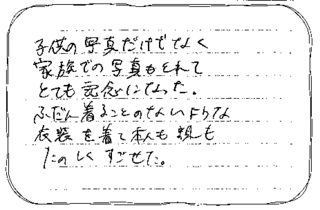 子供の写真だけでなく
家族での写真もとれて
とても記念になった。
ふだん着ることのないような
衣装を着て本人も親も
たのしくすごせた。